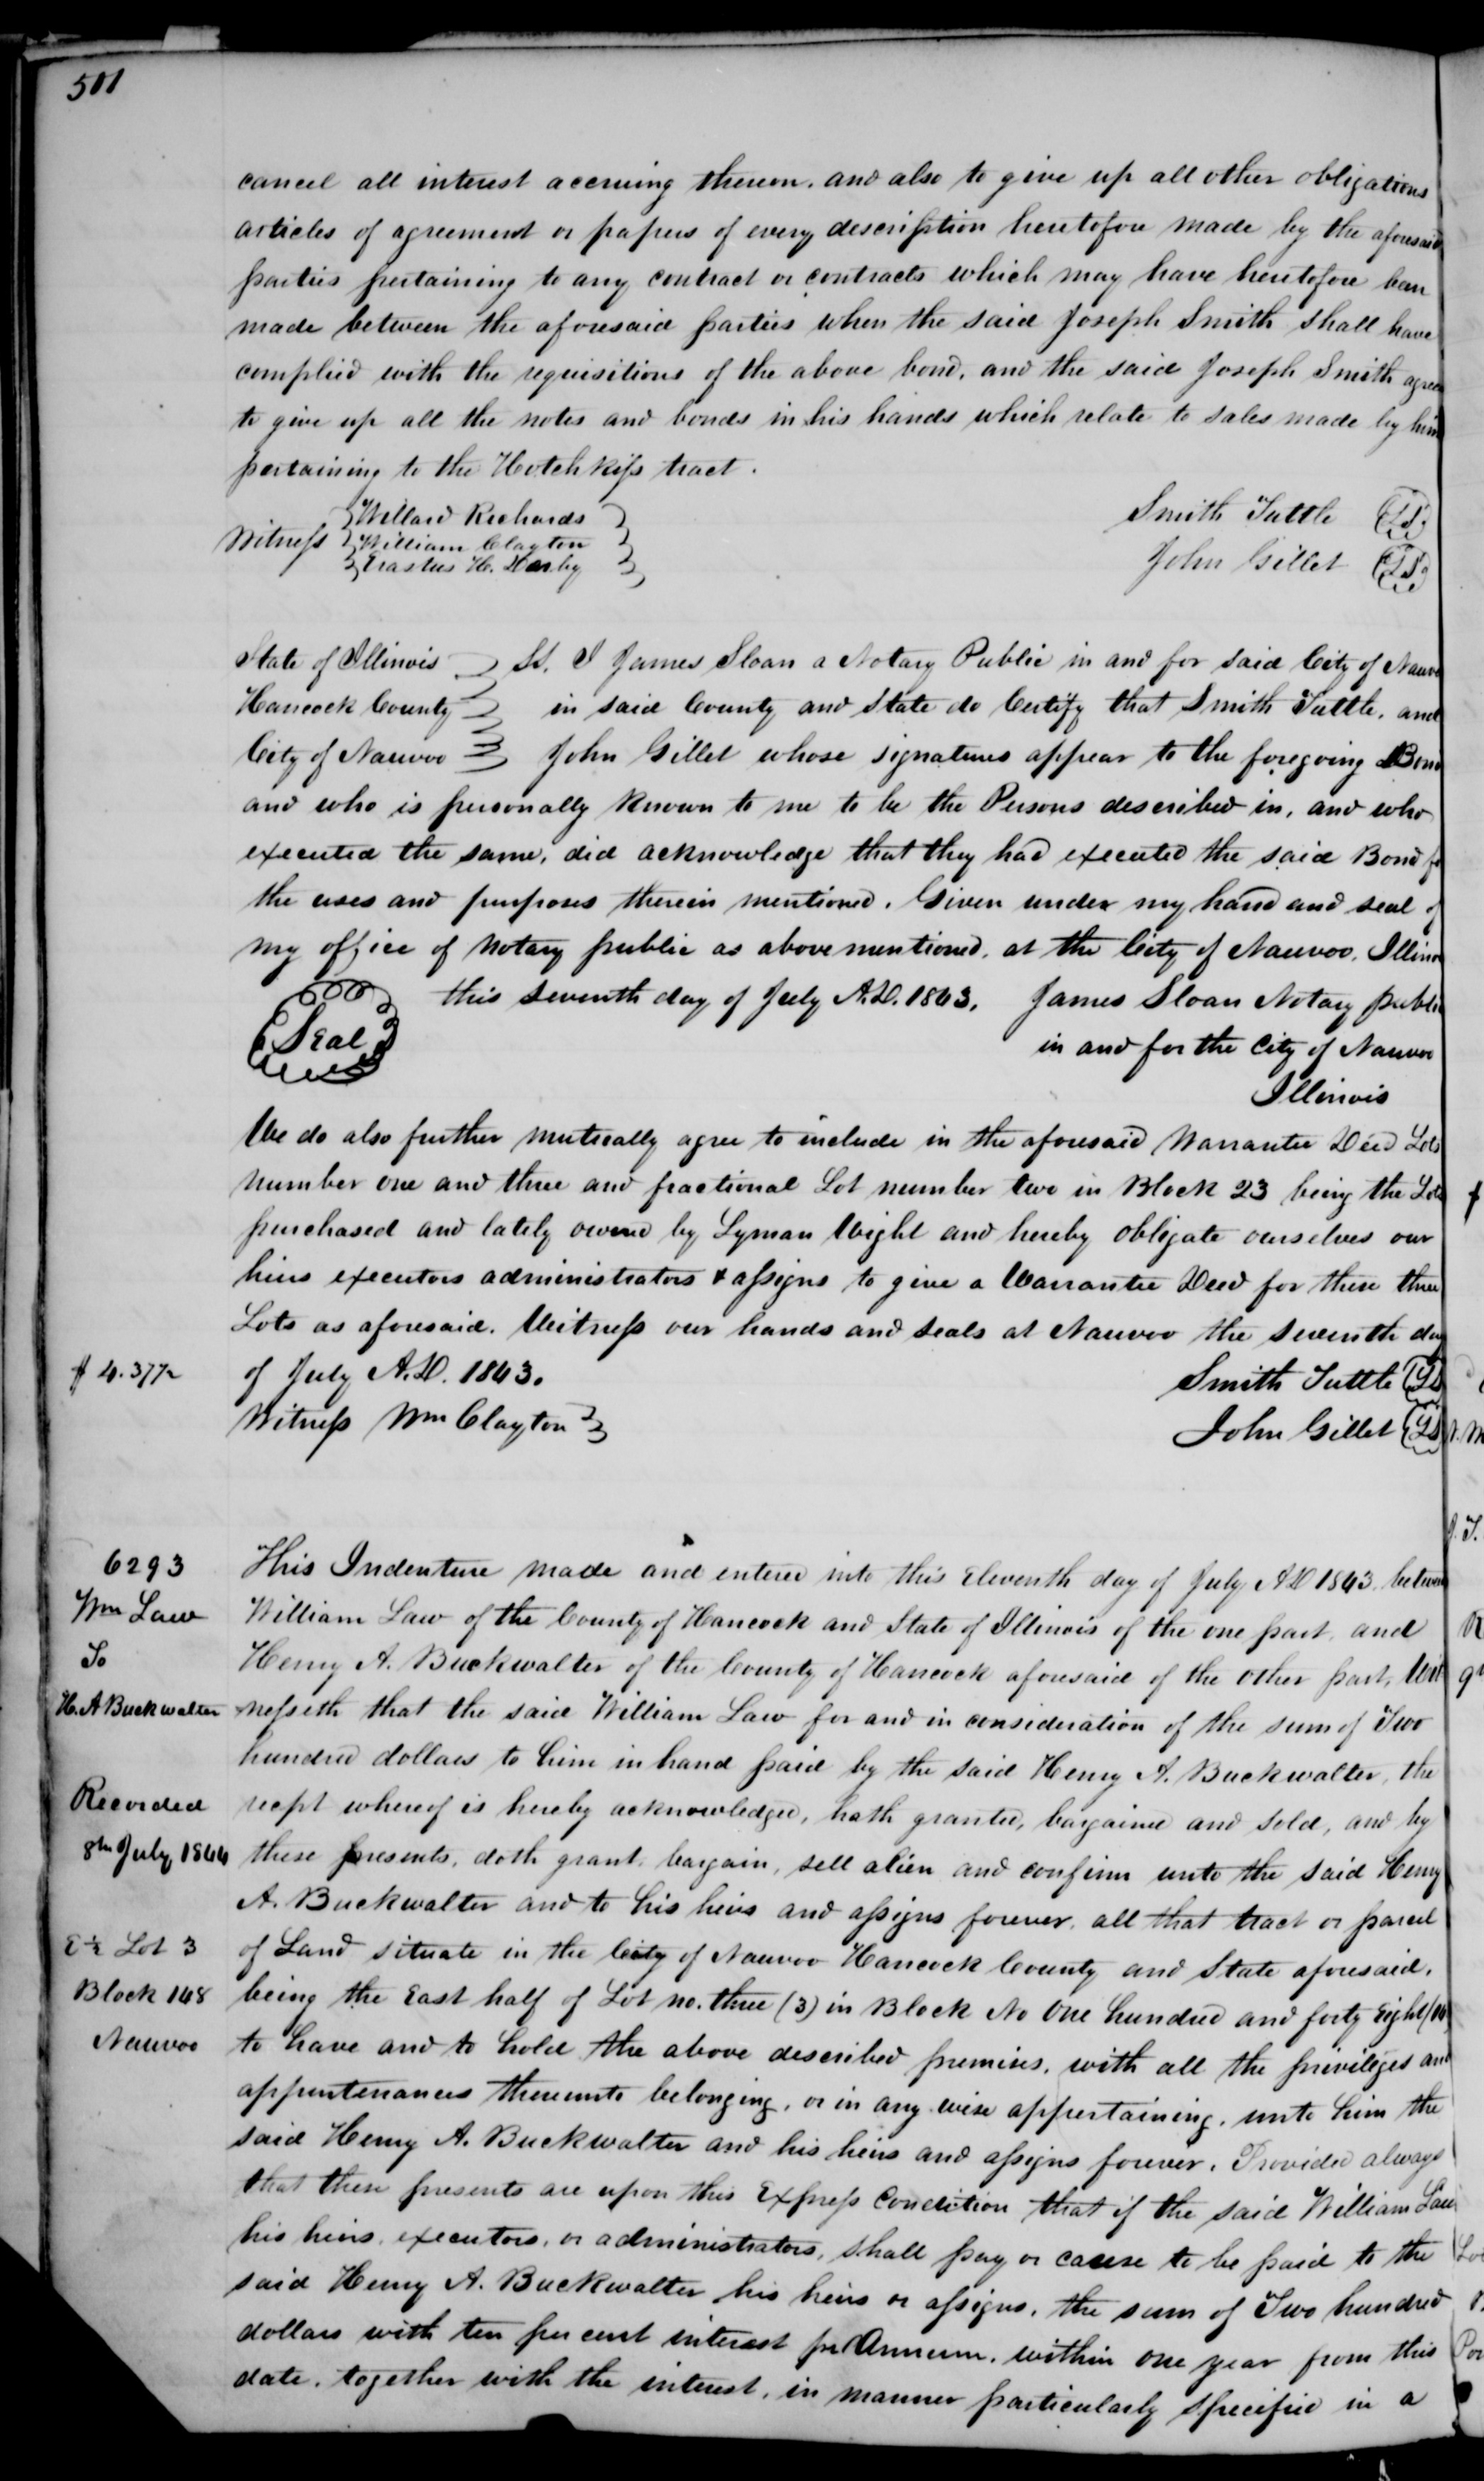 501
cancel all interest accruing thereon, and also to give up all other obligations
articles of agreement or papers of every description heretofore made by the aforesaid
parties pertaining to any contract or contracts which may have heretofore been
made between the aforesaid parties when the said Joseph Smith shall have
complied with the requisitions of the above bond, and the said Joseph Smith agrees
to give up all the notes and bonds in his hands which relate to sales made by him
pertaining to the Hotchkiss tract.
Witness Willard Richards
William Clayton
Erastus H. Derby
Smith Tuttle (LS)
John Gillet (LS)
State of Illinois SS. I James Sloan a Notary Public in and for said City of Nauvoo
Hancock County in said County and State do Certify that Smith Tuttle, and
City of Nauvoo John Gillet whose signatures appear to the foregoing Bond
and who is personally known to me to be the Persons described in, and who
executed the same, did acknowledge that they had executed the said Bond for
the uses and purposes therein mentioned. Given under my hand and seal of
my office of Notary public as above mentioned, at the City of Nauvoo, Illinois
this seventh day of July A.D. 1843. James Sloan Notary public
Seal in and for the City of Nauvoo
Illinois
We do also further mutually agree to include in the aforesaid Warrantee Deed Lots
number one and three and fractional Lot number two in Block 23 being the Lots
purchased and lately owned by Lyman Wight and hereby obligate ourselves our
heirs executors administrators & assigns to give a Warrantee Deed for these three
Lots as aforesaid. Witness our hands and seals at Nauvoo the seventh day
$ 4.37½ of July A.D. 1843. Smith Tuttle (LS)
Witness Wm Clayton John Gillet (LS)
6293 This Indenture made and entered into this Eleventh day of July AD 1843, between
Wm Law William Law of the County of Hancock and State of Illinois of the one part, and
To Henry A. Buckwalter of the County of Hancock aforesaid of the other part, Wit
H. A Buckwalter nesseth that the said William Law for and in consideration of the sum of Two
hundred dollars to him in hand paid by the said Henry A. Buckwalter, the
Recorded recept whereof is hereby acknowledged, hath granted, bargained and sold, and by
8th July 1844 these presents, doth grant, bargain, sell alien and confirm unto the said Henry
A. Buckwalter and to his heirs and assigns forever, all that tract or parcel
E ½ Lot 3 of Land situate in the City of Nauvoo Hancock County and State aforesaid,
Block 148 being the East half of Lot no. three (3) in Block No One hundred and forty Eight
Nauvoo to have and to hold the above described premises, with all the privileges and
appurtenances thereunto belonging, or in any wise appertaining, unto him the
said Henry A. Buckwalter and his heirs and assigns forever. Provided always
that these presents are upon this Express Condition that if the said William Law
his heirs, executors, or administrators, shall pay or cause to be paid to the
said Henry A. Buckwalter his heirs or assigns, the sum of Two hundred
dollars with ten per cent interest per Annum, within one year from this
date, together with the interest, in manner particularly specified in a